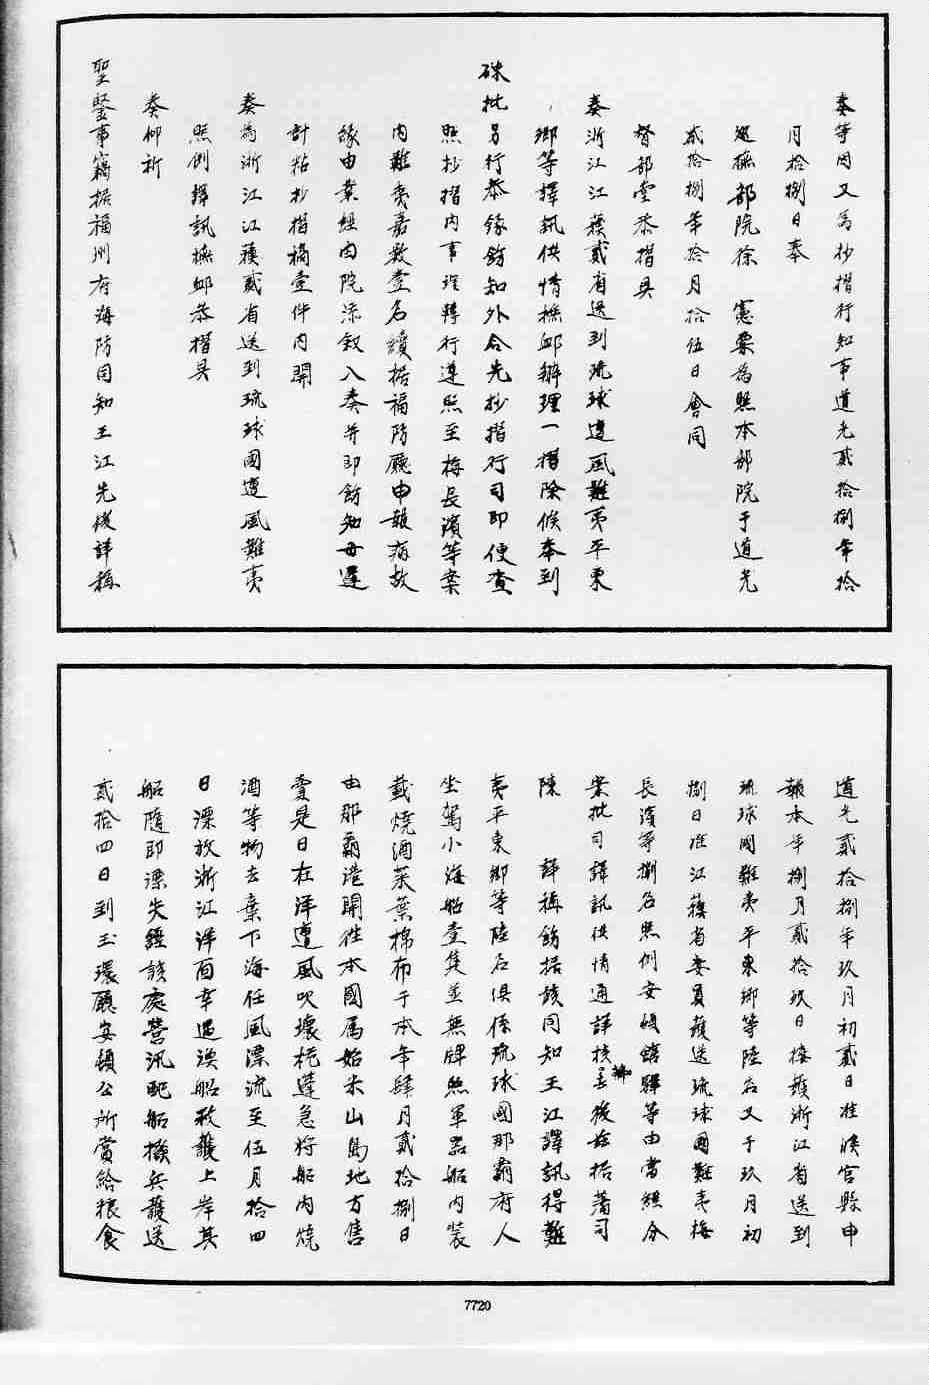 奏等因又為抄摺行知事道光貳拾捌年拾
月拾捌日奉
巡撫部院徐　憲票為照本部院于道光
貳拾捌年拾月拾伍日會同
督部堂恭摺具
奏浙江江蘇貳省送到琉球遭風難夷平東
鄉等譯訊供情撫卹辦理一摺除候奉到
硃批另行恭錄飭知外合先抄摺行司即便查
照抄摺內事理轉行遵照至梅長濱等案
內難夷嘉數壹名續据福防廳申報病故
緣由業經由院添叙入奏并即飭知毋遲
計粘抄摺稿壹件內開
奏為浙江江蘇貳省送到琉球國遭風難夷
照例譯訊撫卹恭摺具
奏仰祈
聖鑒事竊据福州府海防同知王江先後詳稱
道光貳拾捌年玖月初貳日准侯官縣申
報本年捌月貳拾玖日接護浙江省送到
琉球國難夷平東鄉等陸名又于玖月初
捌日准江蘇省委員護送琉球國難夷梅
長濱等捌名照例安頓館驛等由當經分
案批司譯訊供情通詳核辦去後茲据藩司
陳　　詳稱飭据該同知王江譯訊得難
夷平東鄉等陸名俱係琉球國那霸府人
坐駕小海船壹隻並無牌照軍器船內裝
載燒酒茶葉棉布于本年肆月貳拾捌日
由那霸港開往本國属始米山島地方售
賣是日在洋遭風吹壞桅蓬急將船內燒
酒等物丟棄下海任風漂流至伍月拾四
日漂放浙江洋面幸遇漁船救護上岸其
船隨即漂失經該處營汛配船撥兵護送
貳拾四日到玉環廳安頓公所賞給粮食
7720